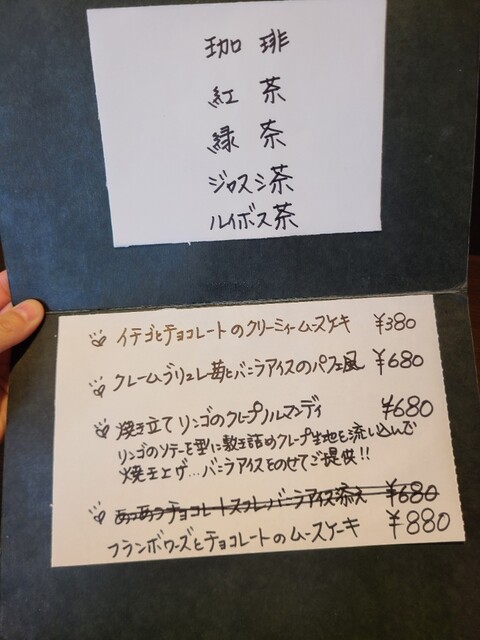 珈琲
紅茶
緑茶
ジャスミン茶
ルイボス茶
イチゴとチョコレートのクリーミィームースケーキ ¥380
クレームブリュレ苺とバニラアイスのパフェ風 ¥680
焼き立てリンゴのクレープノルマンディ ¥680
リンゴのソテーを型に敷き詰めクレープ生地を流し込んで
焼き上げ...バニラアイスをのせてご提供!!
あつあつチョコレートスフレバニラアイス添え ¥680
フランボワーズとチョコレートのムースケーキ ¥880